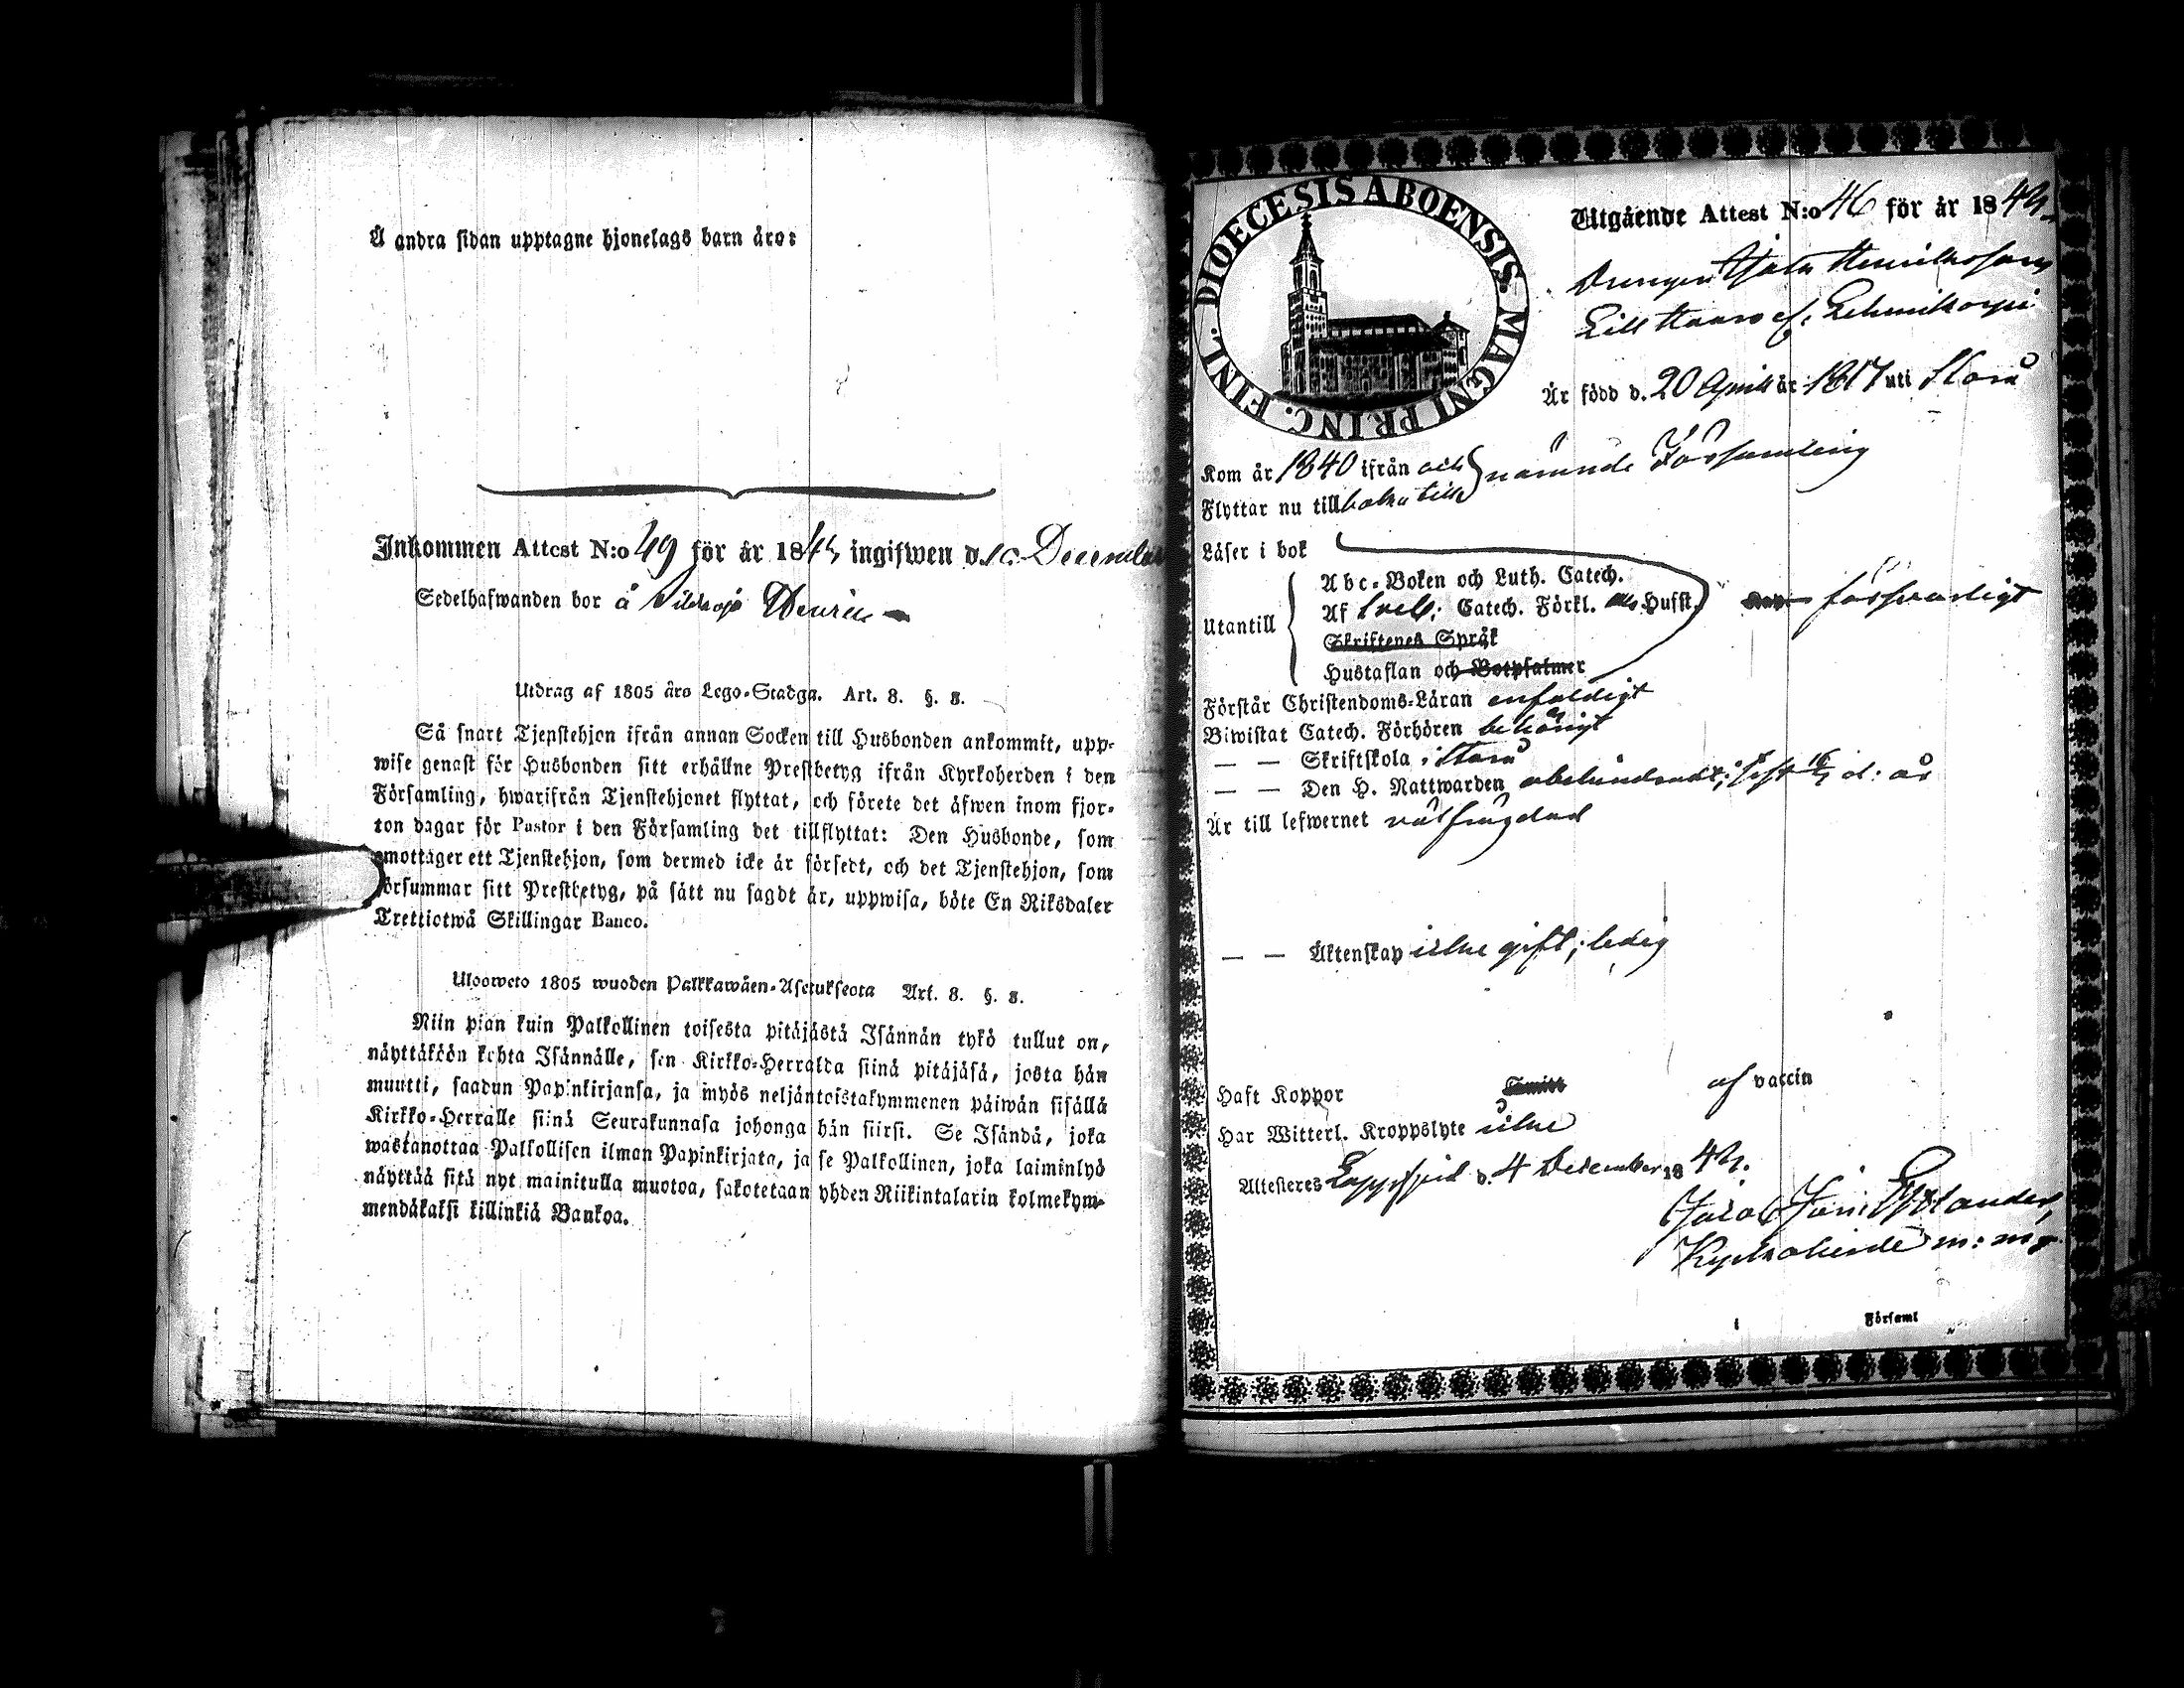 Å andra sidan upptagne hjonelags barn äro:
Inkommen Attest N:o 49 för år 184 ingifwen d. 10 December
Sedelhafwanden bor å
Utdrag af 1805 års Lego-Stadga. Art. 8. §. 8.
Så snart Tjenstehjon ifrån annan Socken till Husbonden ankommit, upp-
wise genast för Husbonden sitt erhållne Prestbetyg ifrån Kyrkoherden i den
Församling, hwarifrån Tjenstehjonet flyttat, och förete det äfwen inom fjor-
ton dagar för Pastor i den Församling det tillflyttat: Den Husbonde, som
emottager ett Tjenstehjon, som dermed icke är försedt, och det Tjenstehjon, som
försummar sitt Prestbetyg, på sätt nu sagdt är, uppwisa, böte En Riksdaler
Trettiotwå Skillingar Banco.
Ulosweto 1805 wuoden Palkkawäen-Asetuksesta Art. 8. §. 8.
Niin pian kuin Palkollinen toisesta pitäjästä Isännän tykö tullut on,
näyttäköön kohta Isännälle, sen Kirkko-Herralda siinä pitäjäsä, josta hän
muutti, saadun Papinkirjansa, ja myös neljäntoistakymmenen päiwän sisällä
Kirkko-Herralle siinä Seurakunnasa johonga hän siirsi. Se Isändä, joka
wastanottaa Palkollisen ilman Papinkirjata, ja se Palkollinen, joka laiminlyö
näyttää sitä nyt mainitulla muotoa, sakotetaan yhden Riikintalarin kolmekym-
mendäkaksi killinkiä Bankoa.
DIOECESIS ABOENSIS. MAGNI PRINC. FINL.
Utgående Attest N:o 46 för år 184
Drengen Henriksson
Lill
Är född d. 20 April år 1817 uti Storå
Kom år 1840 ifrån och } nämnde Församling
Flyttar nu till baka till
Läser i bok
Abc-Boken och Luth. Catech.
Utantill { Af Catech. Förkl. Husst. försvarligt
Skriftenes Språk
Hustaflan och Botpsalmer
Förstår Christendoms-Läran enfaldigt
Biwistat Catech. Förhören behörigt
— — Skriftskola i Storå
— — Den H. Nattwarden obehindradt; sist d: år
Är till lefwernet välfrägdad
— — Äktenskap icke gift; ledig
Haft Koppor af vaccin
Har Witterl. Kroppslyte icke
Attesteres Lappfjerd d. 4 December 184
Jacob Joh:
Kyrkoherde m: m.
Församl